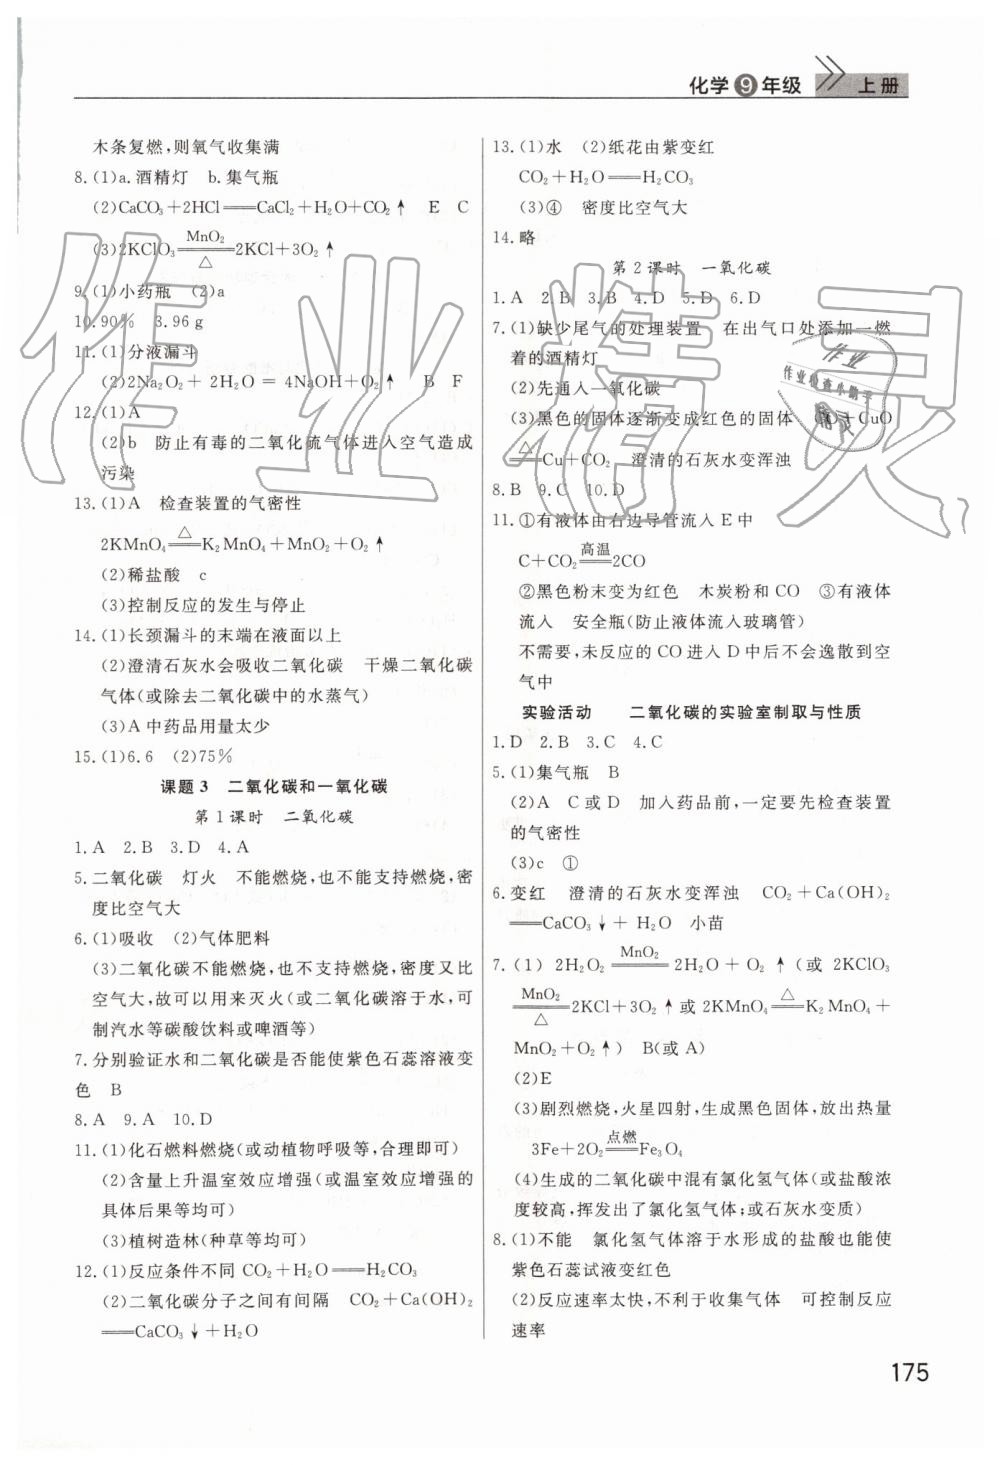 化学9年级 上册
木条复燃,则氧气收集满
8.(1)a.酒精灯 b.集气瓶
(2)CaCO₃+2HCl══CaCl₂+H₂O+CO₂↑ E C
(3)2KClO₃ MnO₂══△ 2KCl+3O₂↑
9.(1)小药瓶 (2)a
10.90% 3.96 g
11.(1)分液漏斗
(2)2Na₂O₂+2H₂O=4NaOH+O₂↑ B F
12.(1)A
(2)b 防止有毒的二氧化硫气体进入空气造成
污染
13.(1)A 检查装置的气密性
2KMnO₄ △══ K₂MnO₄+MnO₂+O₂↑
(2)稀盐酸 c
(3)控制反应的发生与停止
14.(1)长颈漏斗的末端在液面以上
(2)澄清石灰水会吸收二氧化碳 干燥二氧化碳
气体(或除去二氧化碳中的水蒸气)
(3)A中药品用量太少
15.(1)6.6 (2)75%
课题3 二氧化碳和一氧化碳
第1课时 二氧化碳
1.A 2.B 3.D 4.A
5.二氧化碳 灯火 不能燃烧,也不能支持燃烧,密
度比空气大
6.(1)吸收 (2)气体肥料
(3)二氧化碳不能燃烧,也不支持燃烧,密度又比
空气大,故可以用来灭火(或二氧化碳溶于水,可
制汽水等碳酸饮料或啤酒等)
7.分别验证水和二氧化碳是否能使紫色石蕊溶液变
色 B
8.A 9.A 10.D
11.(1)化石燃料燃烧(或动植物呼吸等,合理即可)
(2)含量上升温室效应增强(或温室效应增强的
具体后果等均可)
(3)植树造林(种草等均可)
12.(1)反应条件不同 CO₂+H₂O══H₂CO₃
(2)二氧化碳分子之间有间隔 CO₂+Ca(OH)₂
══CaCO₃↓+H₂O
13.(1)水 (2)纸花由紫变红
CO₂+H₂O══H₂CO₃
(3)④ 密度比空气大
14.略
第2课时 一氧化碳
1.A 2.B 3.B 4.D 5.D 6.D
7.(1)缺少尾气的处理装置 在出气口处添加一燃
着的酒精灯
(2)先通入一氧化碳
(3)黑色的固体逐渐变成红色的固体 CO+CuO
△══Cu+CO₂ 澄清的石灰水变浑浊
8.B 9.C 10.D
11.①有液体由右边导管流入E中
C+CO₂ 高温══ 2CO
②黑色粉末变为红色 木炭粉和CO ③有液体
流入 安全瓶(防止液体流入玻璃管)
不需要,未反应的CO进入D中后不会逸散到空
气中
实验活动 二氧化碳的实验室制取与性质
1.D 2.B 3.C 4.C
5.(1)集气瓶 B
(2)A C或D 加入药品前,一定要先检查装置
的气密性
(3)c ①
6.变红 澄清的石灰水变浑浊 CO₂+Ca(OH)₂
══CaCO₃↓+H₂O 小苗
7.(1) 2H₂O₂ MnO₂══ 2H₂O+O₂↑(或 2KClO₃
MnO₂══△ 2KCl+3O₂↑或 2KMnO₄ △══ K₂MnO₄+
MnO₂+O₂↑) B(或A)
(2)E
(3)剧烈燃烧,火星四射,生成黑色固体,放出热量
3Fe+2O₂ 点燃══ Fe₃O₄
(4)生成的二氧化碳中混有氯化氢气体(或盐酸浓
度较高,挥发出了氯化氢气体;或石灰水变质)
8.(1)不能 氯化氢气体溶于水形成的盐酸也能使
紫色石蕊试液变红色
(2)反应速率太快,不利于收集气体 可控制反应
速率
175
作业精灵
作业
作业检查小助手
精灵